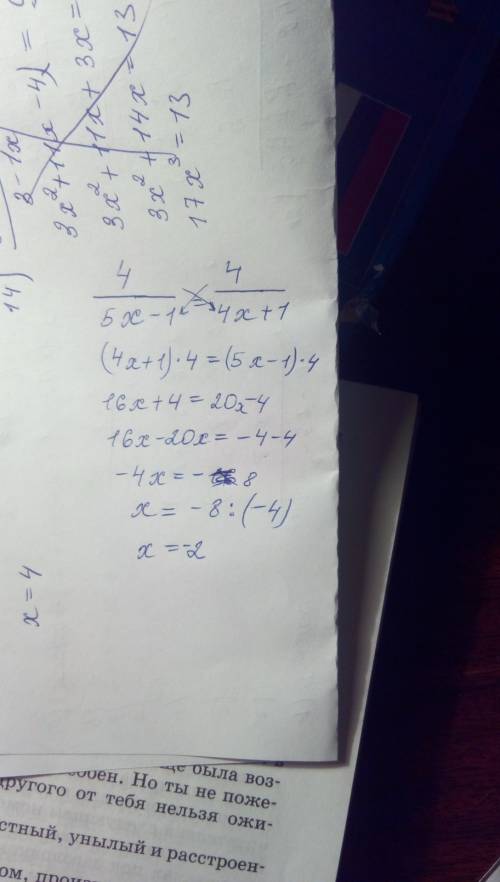 3 - 1x
3x² + 11x - 42 =
3x² + 11x + 3x =
3x² + 14x = 13
17x³ = 13
14)
4 / (5x-1) = 4 / (4x+1)
(4x+1)·4 = (5x-1)·4
16x+4 = 20x-4
16x-20x = -4-4
-4x = -8
x = -8:(-4)
x = -2
x = 4
была воз-
Но ты не поже-
другого от тебя нельзя ожи-
стный, унылый и расстроен-